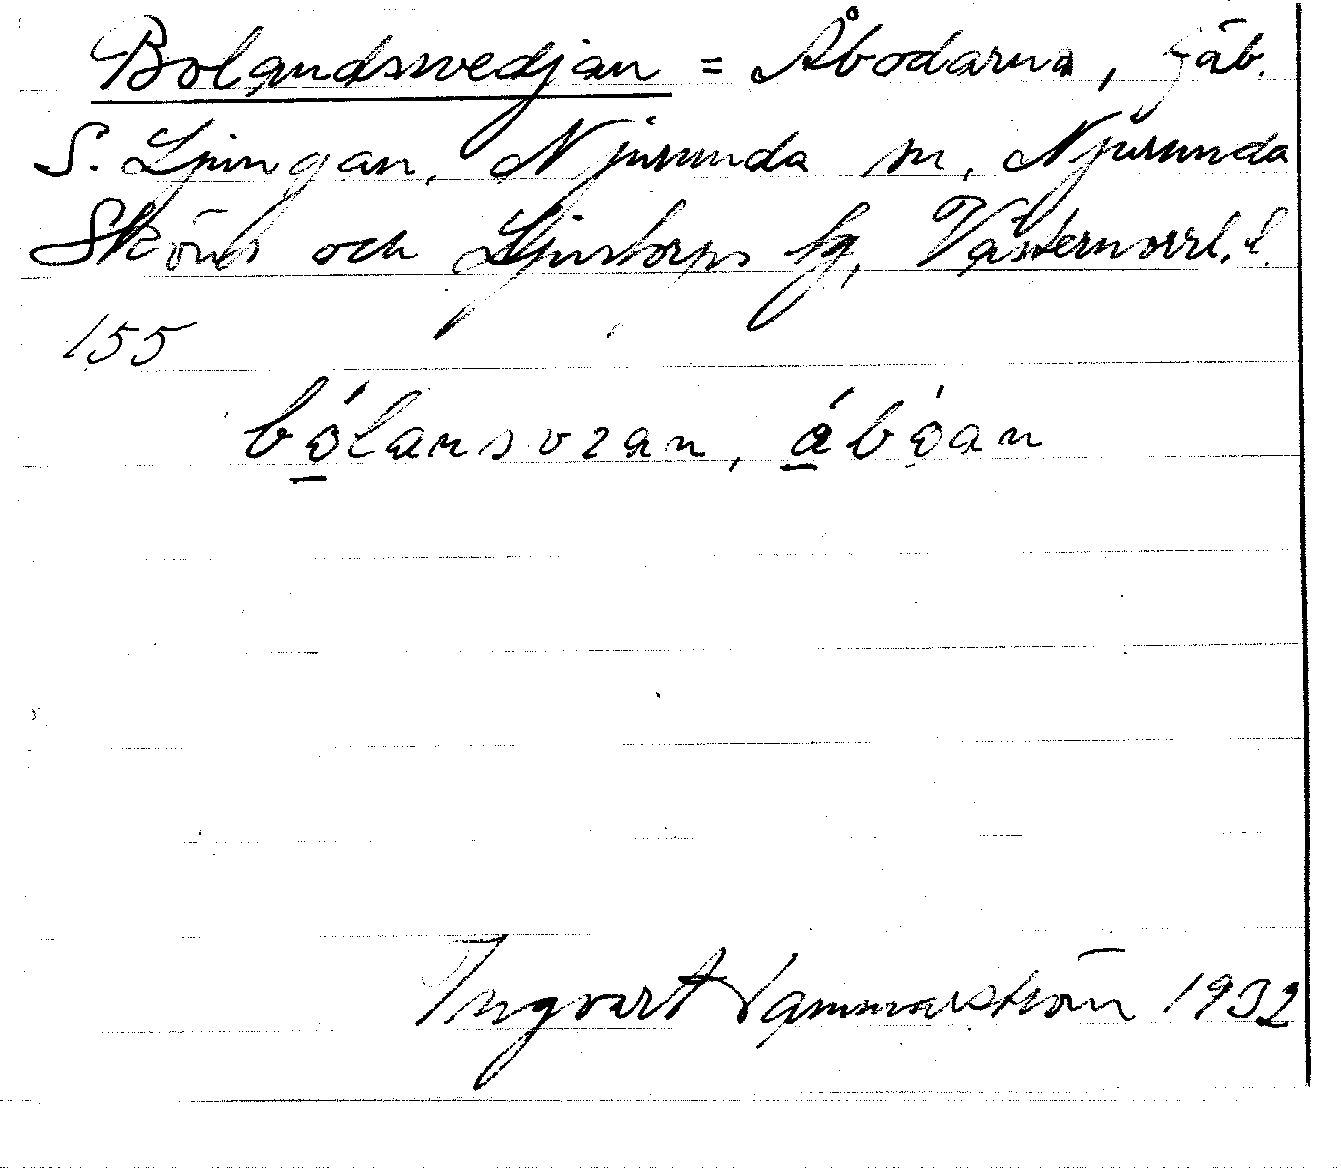 Bolandsvedjan = Åbodarna, fäb.
S. Ljungan, Njurunda sn, Njurunda
Sköns och Ljustorps tg, Västernorrl. l.
155
bólansvean, åbóan
Ingvart Hammarström 1932